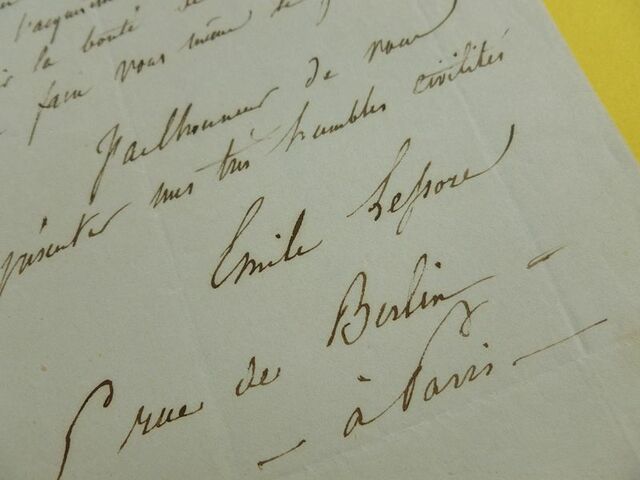 l'acquisi
la bonté de
faire vous même de
J'ai l'honneur de vous
présenter mes très humbles civilités
Emile Lessore
5 rue de Berlin
à Paris